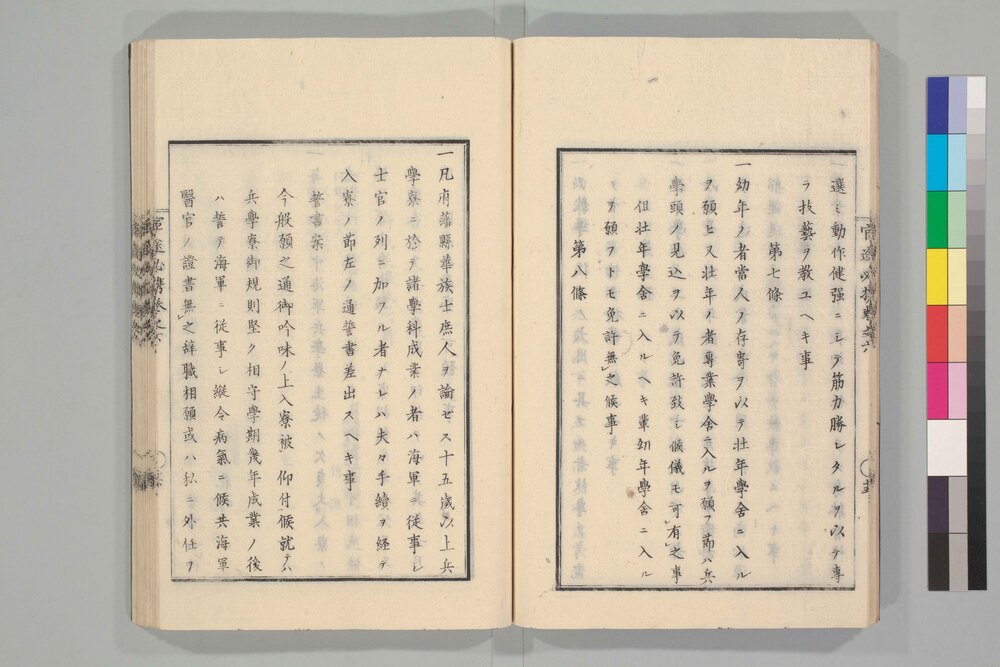 選ミ動作健强ニシテ筋力勝レタルヲ以テ専
ラ技藝ヲ教ユヘキ事
第七條
一幼年ノ者當人ノ存寄ヲ以テ壮年學舎ニ入ル
ヲ願ヒ又壮年ノ者專業學舎ニ入ルヲ願フ節ハ兵
學頭ノ見込ヲ以テ免許致シ候儀モ可有之事
但壮年學舎ニ入ルヘキ輩幼年學舎ニ入ル
ヲ願フトモ免許無之候事
第八條
一凡府藩縣華族士庶人ヲ論セス十五歳以上兵
學寮ニ於テ諸學科成業ノ者ハ海軍ニ從事シ
士官ノ列ニ加フル者ナレハ夫々手續ヲ経テ
入寮ノ節左ノ通誓書差出スヘキ事
今般願之通御吟味ノ上入寮被仰付候就テハ
兵學寮御規則堅ク相守學期幾年成業ノ後
ハ誓テ海軍ニ從事シ縦令病氣ニ候共海軍
醫官ノ證書無之辞職相願或ハ私ニ外任ヲ